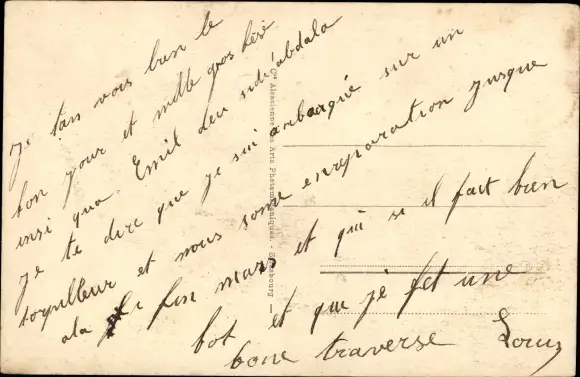 Je t'an vois bien le
bon jour et mille gros bésé
insi qua Emil Leu sidi abdala
Je te dire que je sui anbarqué sur un
torpilleur et nous some enreparation jusque
ala fin mars et qui si il fait bien
bot et que je fet une
bone traverse Louis
Cie Alsacienne des Arts Photomécaniques. - Strasbourg